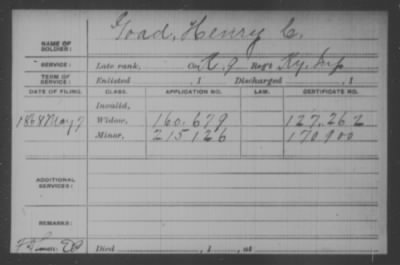 Goad, Henry C.
NAME OF SOLDIER:
SERVICE: Late rank, Co. K. 9 Reg't Ky. Inf
TERM OF SERVICE: Enlisted , 1 Discharged , 1
DATE OF FILING. CLASS. APPLICATION NO. LAW. CERTIFICATE NO.
Invalid,
1868 May 7 Widow, 160.679 127.262
Minor, 215126 170.900
ADDITIONAL SERVICES:
REMARKS:
Died , 1 , at